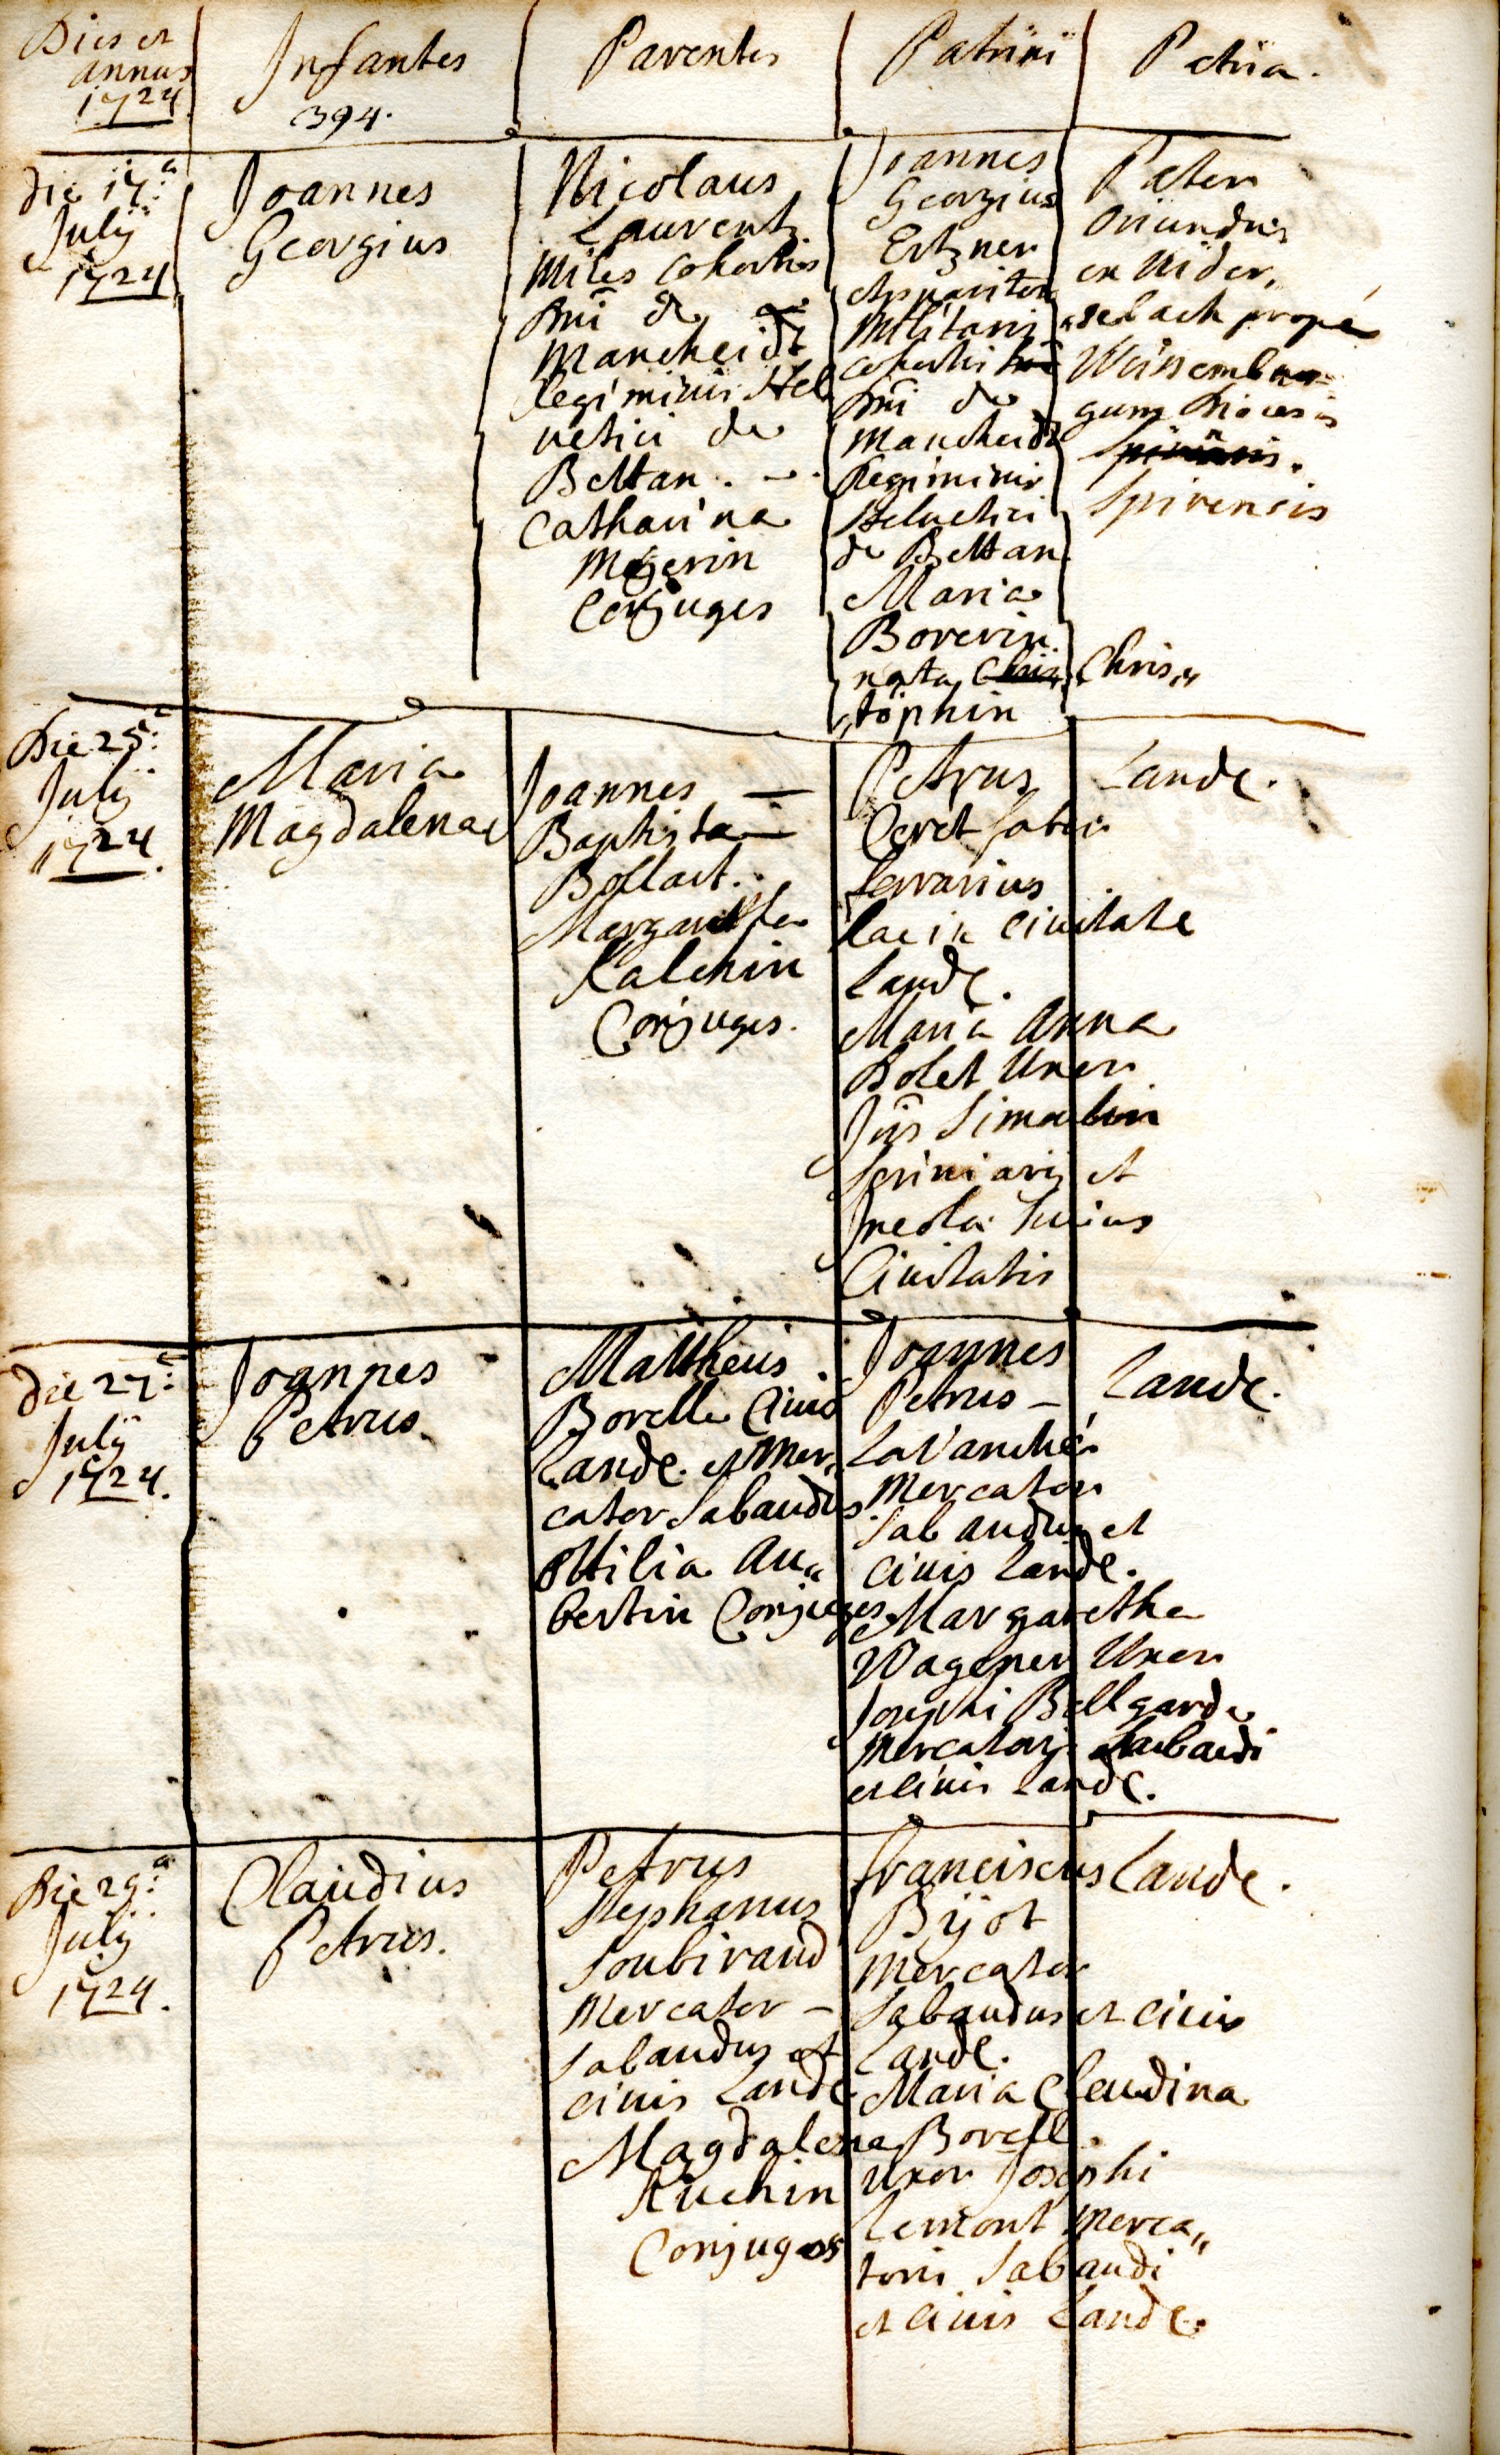 Dies et
annus
1724
Infantes
394.
Parentes
Patrini
Patria.
die 17.a
Julÿ
1724
Joannes
Georgius
Nicolaus
Laurentz
Miles Cohortis
Dni de
Mancheidt
Regiminis Hel
vetici de
Bettan.
Catharina
Conjuges
Joannes
Georgius
Ertzner
Apparitor
Militaris
cohortis
Dni de
Mancheidt
Regiminis
Helvetici
de Bettan
Maria
Borerin
nata Chris„
„töphin
Pater
Oriundus
ex Nider,
„selach propé
Weissembur=
gum Diocesis
Spirensis
Chris„
Die 25.a
Julÿ
1724.
Maria
Magdalena
Joannes
Baptista
Bollart.
Margaretha
Kalchin
Conjuges.
Petrus
Ceret faber
ferrarius
hac in Civitate
Landc.
Maria Anna
Bolet Uxor
Jois Simon
Scriniarÿ et
Incola hujus
Civitatis
Landc.
die 27.a
Julÿ
1724.
Joannes
Petrus.
Mattheus
Borelle Civis
Landc. et Mer„
cator Sabaudus.
Ottilia Au„
bertin Conjuges
Joannes
Petrus –
LaVanché
Mercator
Sabaudus et
Civis Landc.
Margaretha
Wagener Uxor
Josephi Bellgarde
Mercatoris Sabaudi
et Civis Landc.
Landc.
Die 29.a
Julÿ
1724.
Claudius
Petrus.
Petrus
Stephanus
Soubiraud
Mercator –
Sabaudus et
Civis Landc
Magdalena
Kuchin
Conjuges
Franciscus
Bijot
Mercator
Sabaudus et Civis
Landc.
Maria Claudina
Borell
Uxor Josephi
Lemont Merca„
toris Sabaudi
et Civis Landc.
Landc.